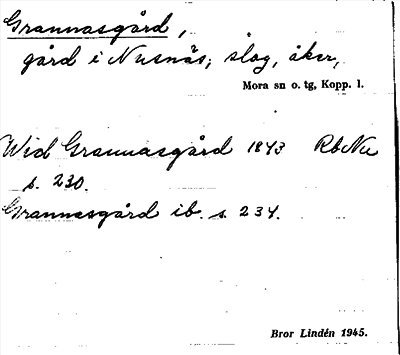 Grannasgård,
gård i Nusnäs, slog, åker,
Mora sn o. tg, Kopp. l.
Wid Grannasgård 1843 RbNu
s. 230.
Grannasgård ib. s. 234.
Bror Lindén 1945.